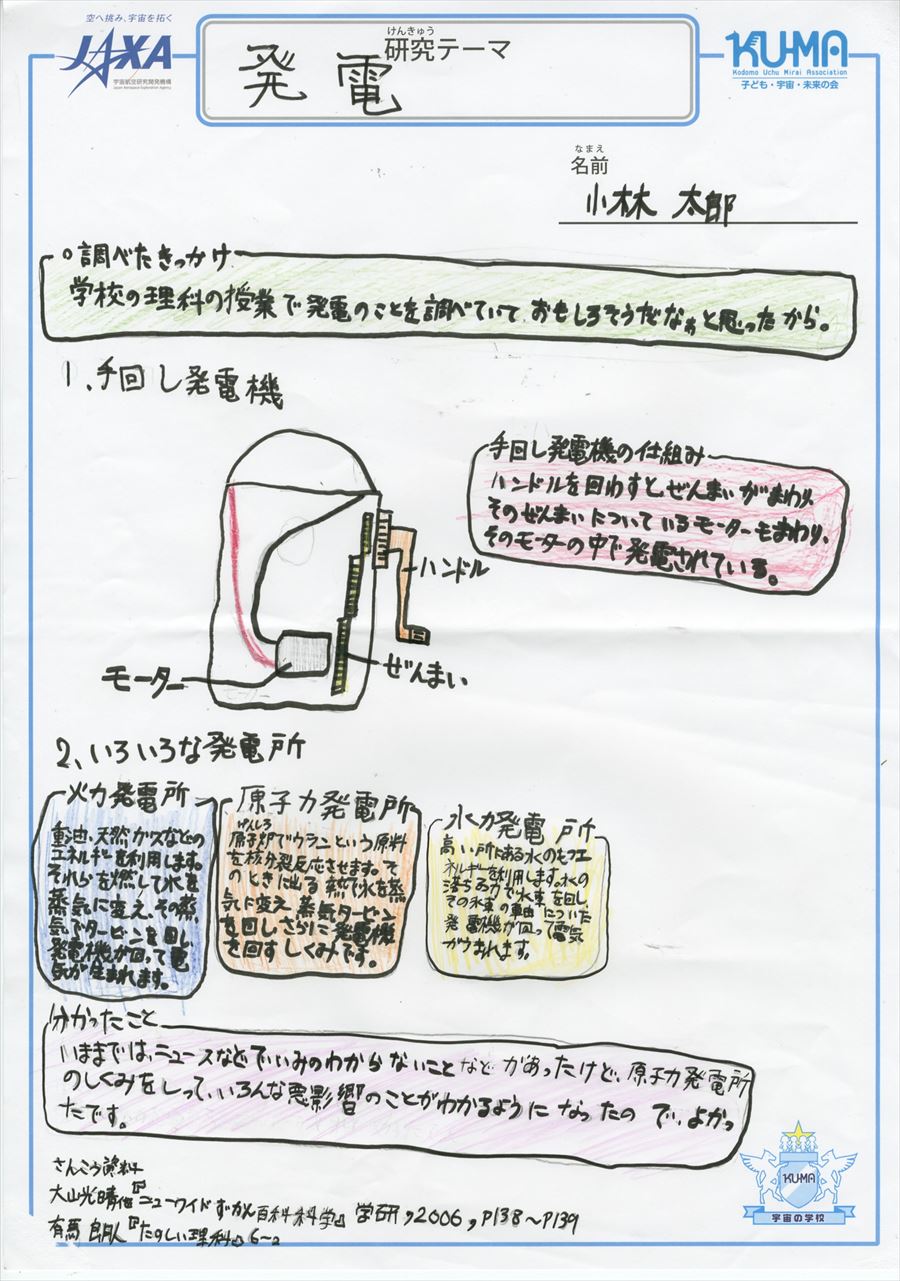 空へ挑み、宇宙を拓く
JAXA
宇宙航空研究開発機構
Japan Aerospace Exploration Agency
けんきゅう
研究テーマ
発電
KU-MA
Kodomo Uchu Mirai Association
子ども・宇宙・未来の会
なまえ
名前
小林 太郎
○調べたきっかけ
学校の理科の授業で発電のことを調べていて、おもしろそうだなぁと思ったから。
1、手回し発電機
手回し発電機の仕組み
ハンドルを回わすと、ぜんまいがまわり、
そのぜんまいについているモーターもまわり、
そのモーターの中で発電されている。
ハンドル
モーター
ぜんまい
2、いろいろな発電所
火力発電所
重油・天然ガスなどの
エネルギーを利用します。
それらを燃して水を
蒸気に変え、その蒸
気でタービンを回し、
発電機が回って電
気が生まれます。
原子力発電所
げんしろ
原子炉でウランという原料
を核分裂反応させます。そ
のときに出る熱で水を蒸
気に変え、蒸気タービン
を回し、さらに発電機
を回すしくみです。
水力発電所
高い所にある水のもつエ
ネルギーを利用します。水の
落ちる力で水車を回し、
その水車の軸についた
発電機が回って電気
がうまれます。
分かったこと
いままでは、ニュースなどでいみのわからないことなどがあったけど、原子力発電所
のしくみをしって、いろんな悪影響のことがわかるようになったので、よかっ
たです。
さんこう資料
大山光晴他『ニューワイドずかん百科 科学』学研,2006,P138〜P139
有馬朗人『たのしい理科』6〜2
KU-MA
宇宙の学校